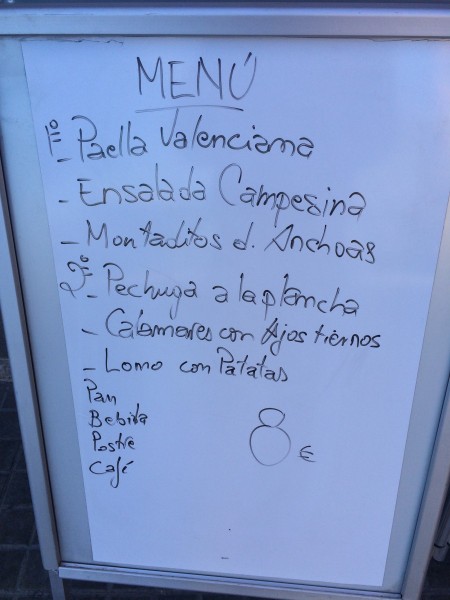 MENÚ
1º - Paella Valenciana
- Ensalada Campesina
- Montaditos d. Anchoas
2º - Pechuga a la plancha
- Calamares con Ajos tiernos
- Lomo con Patatas
Pan
Bebida
Postre
Café
8 €